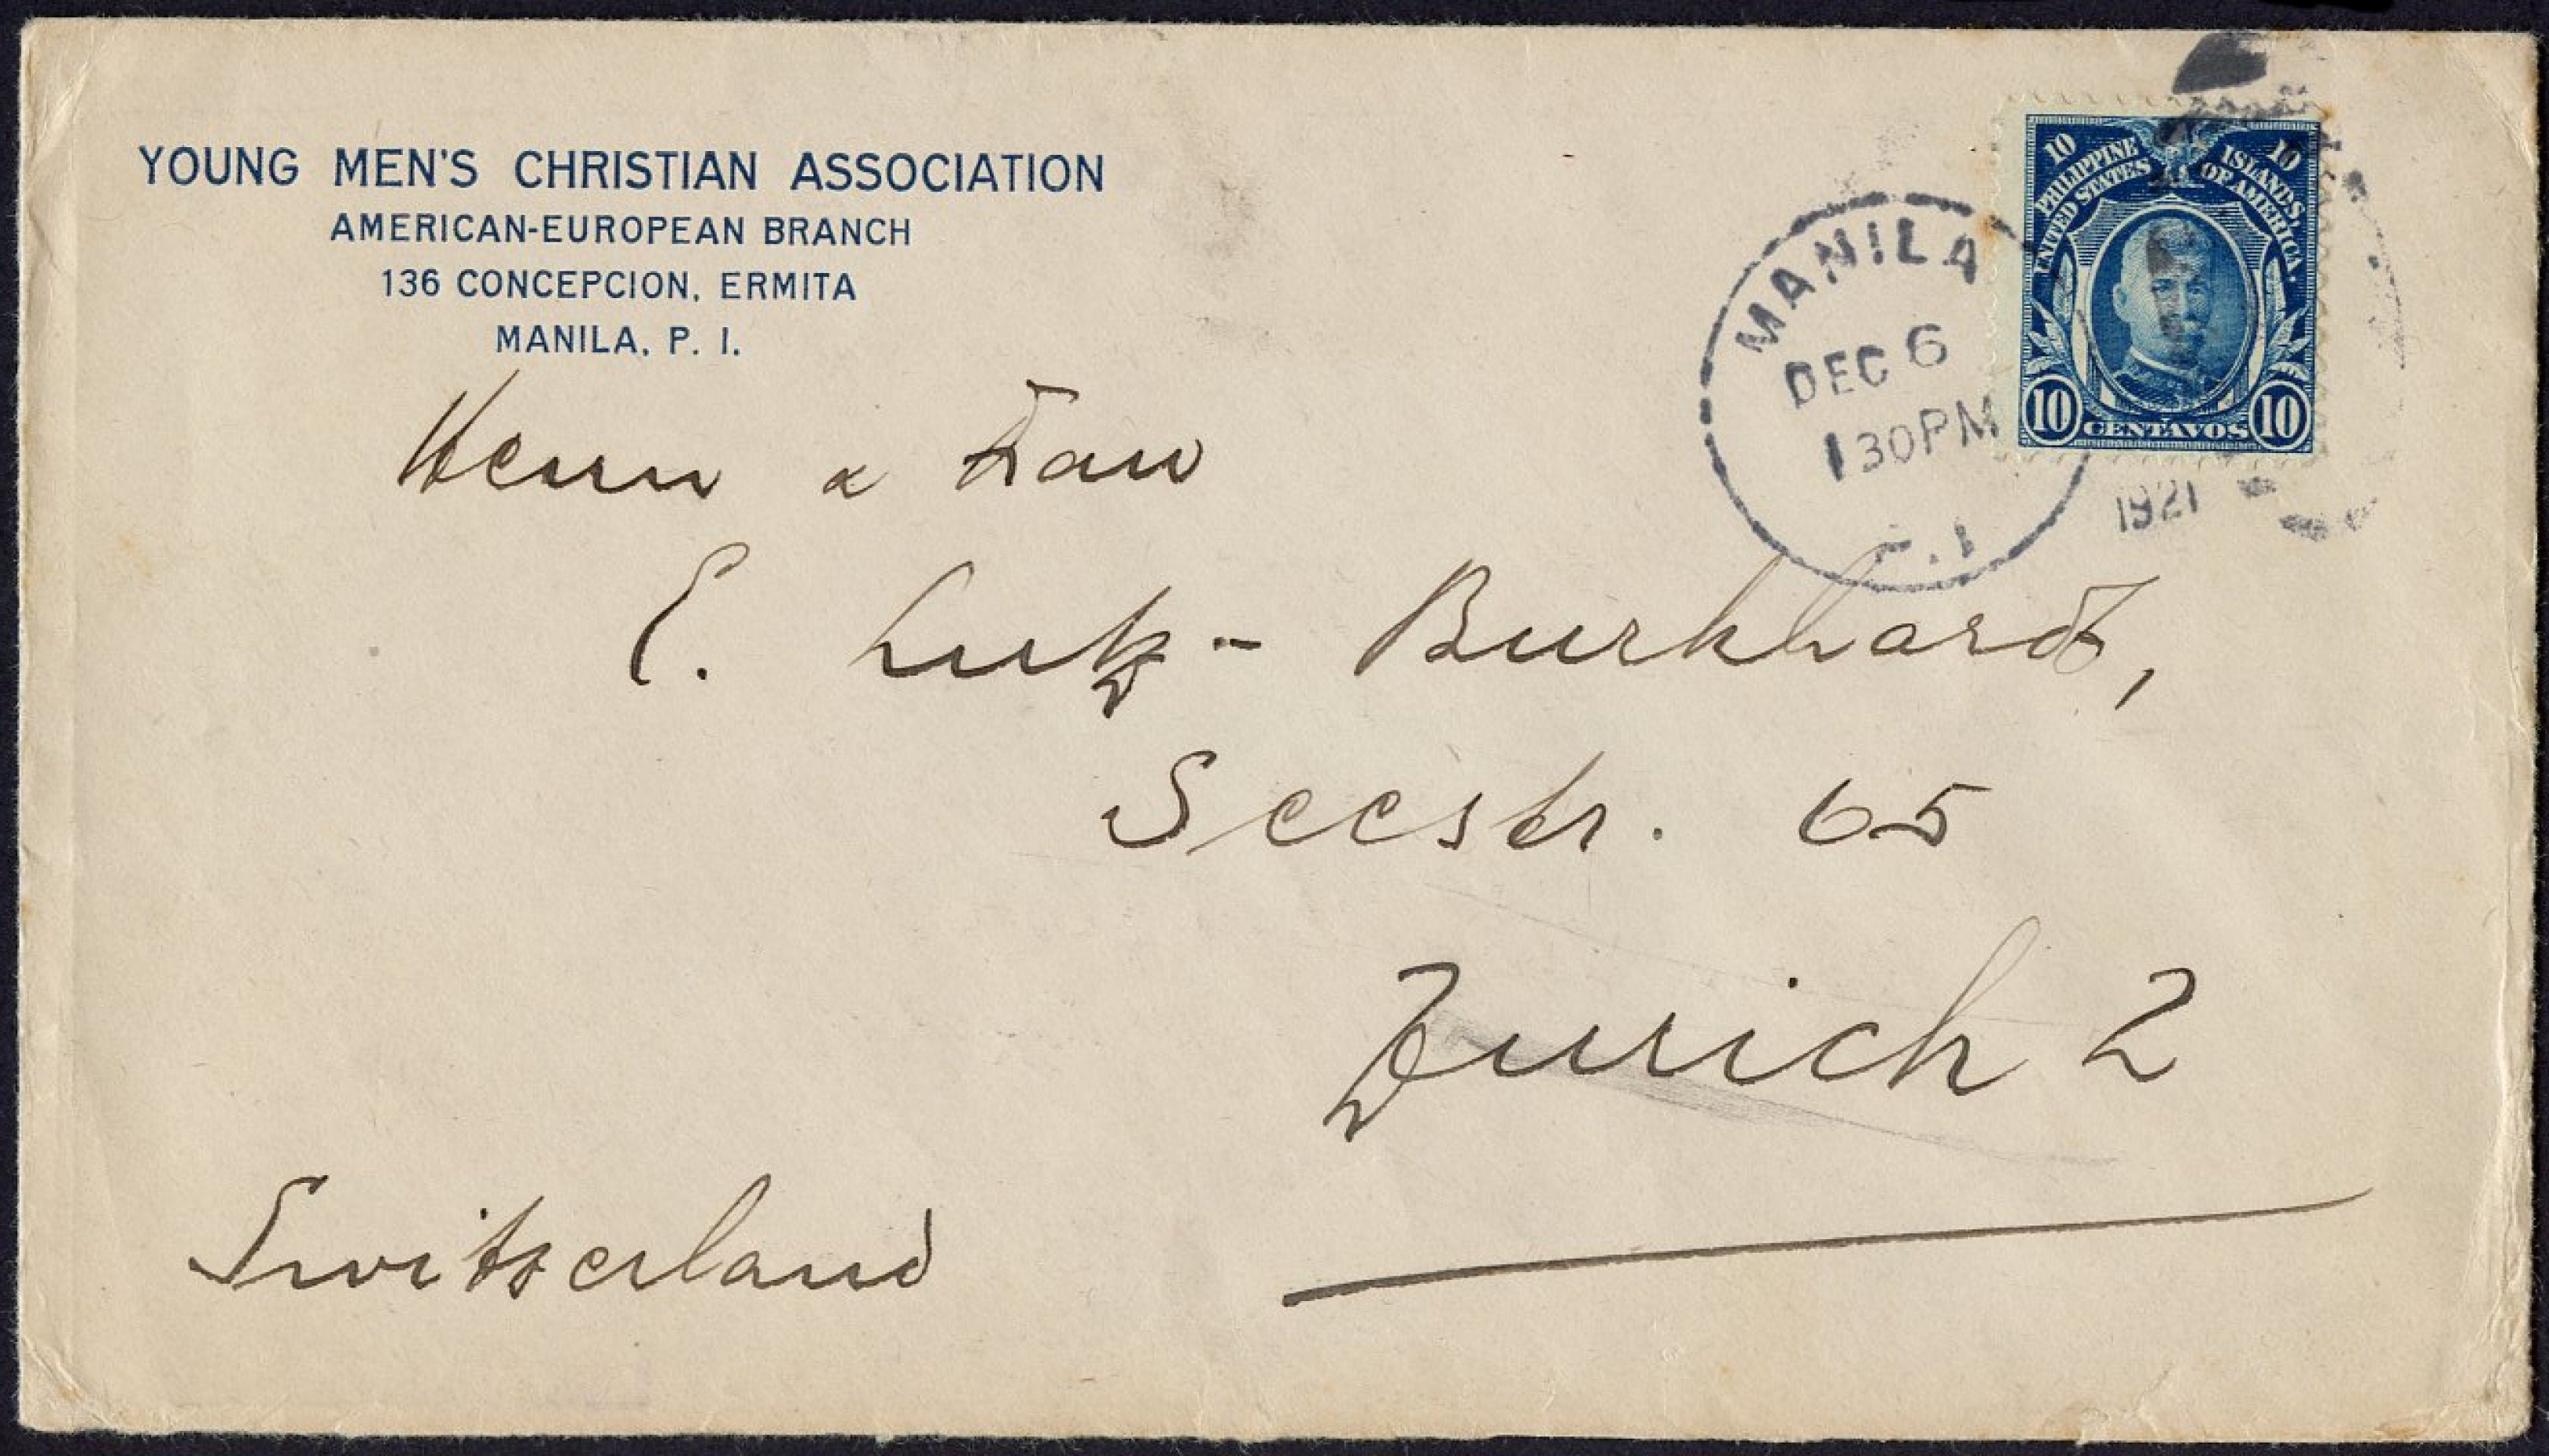 YOUNG MEN'S CHRISTIAN ASSOCIATION
AMERICAN-EUROPEAN BRANCH
136 CONCEPCION, ERMITA
MANILA, P. I.
10 10
PHILIPPINE ISLANDS
UNITED STATES OF AMERICA.
10 CENTAVOS 10
MANILA
DEC 6
130PM
P.I
1921
Herrn & Frau
E. Lutz - Burkhardt,
Seestr. 65
Zurich 2
Switzerland